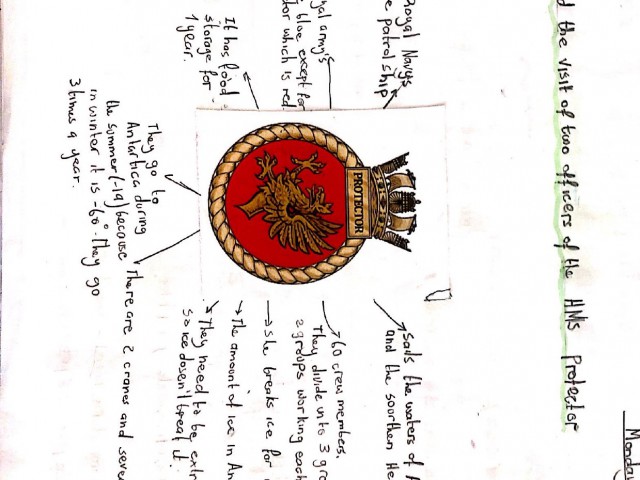 Monday
d the visit of two officers of the HMS Protector
Royal Navy's
patrol ship
army's
blue except for
which is red.
It has food
storage for
1 year.
PROTECTOR
They go to
Antartica during
the summer (-19) because
in winter it is -60° they go
3 times a year.
Sails the waters of
and the soorthen He
60 crew members.
They divide in to 3 gro
2 groups working each
She breaks ice for
The amount of ice in An
They need to be extr
so ice dosen't break it.
There are 2 cranes and seve